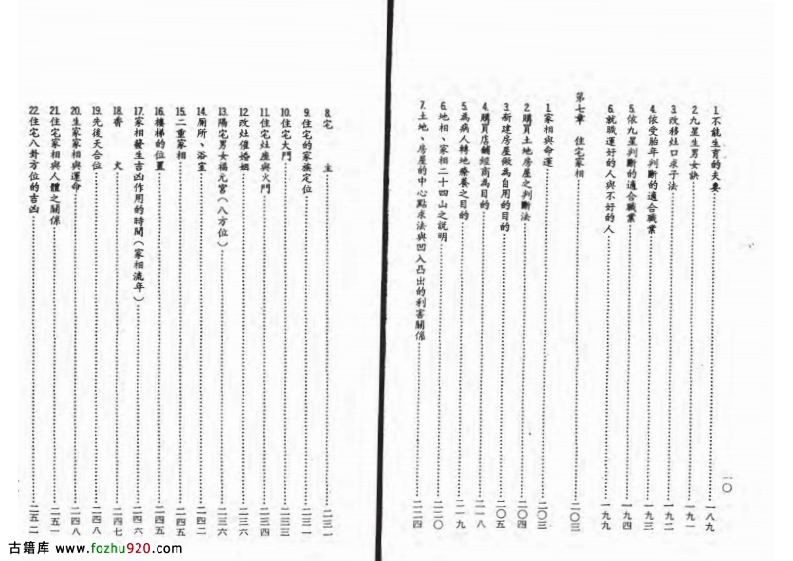 一〇
1.不能生育的夫妻……一八九
2.九星生男女訣……一九一
3.改移灶口求子法……一九二
4.依受胎年判斷的適合職業……一九三
5.依九星判斷的適合職業……一九四
6.就職運好的人與不好的人……一九九
第七章 住宅家相……二〇三
1.家相與命運……二〇三
2.購買土地房屋之判斷法……二〇四
3.新建房屋做為自用的目的……二〇五
4.購買店舖經商為目的……二一八
5.為病人轉地療養之目的……二一九
6.地相、家相二十四山之說明……二二〇
7.土地、房屋的中心點求法與凹入凸出的利害關係……二二四
8.宅 主……二三一
9.住宅的家族定位……二三一
10.住宅大門……二三三
11.住宅灶座與火門……二三四
12.改灶催婚姻……二三六
13.陽宅男女福元宮(八方位)……二三六
14.厠所、浴室……二四二
15.二重家相……二四五
16.樓梯的位置……二四五
17.家相發生吉凶作用的時間(家相流年)……二四六
18.香 火……二四七
19.先後天合位……二四八
20.生家家相與運命……二四八
21.住宅家相與人體之關係……二五一
22.住宅八卦方位的吉凶……二五二
古籍库 www.fozhu920.com